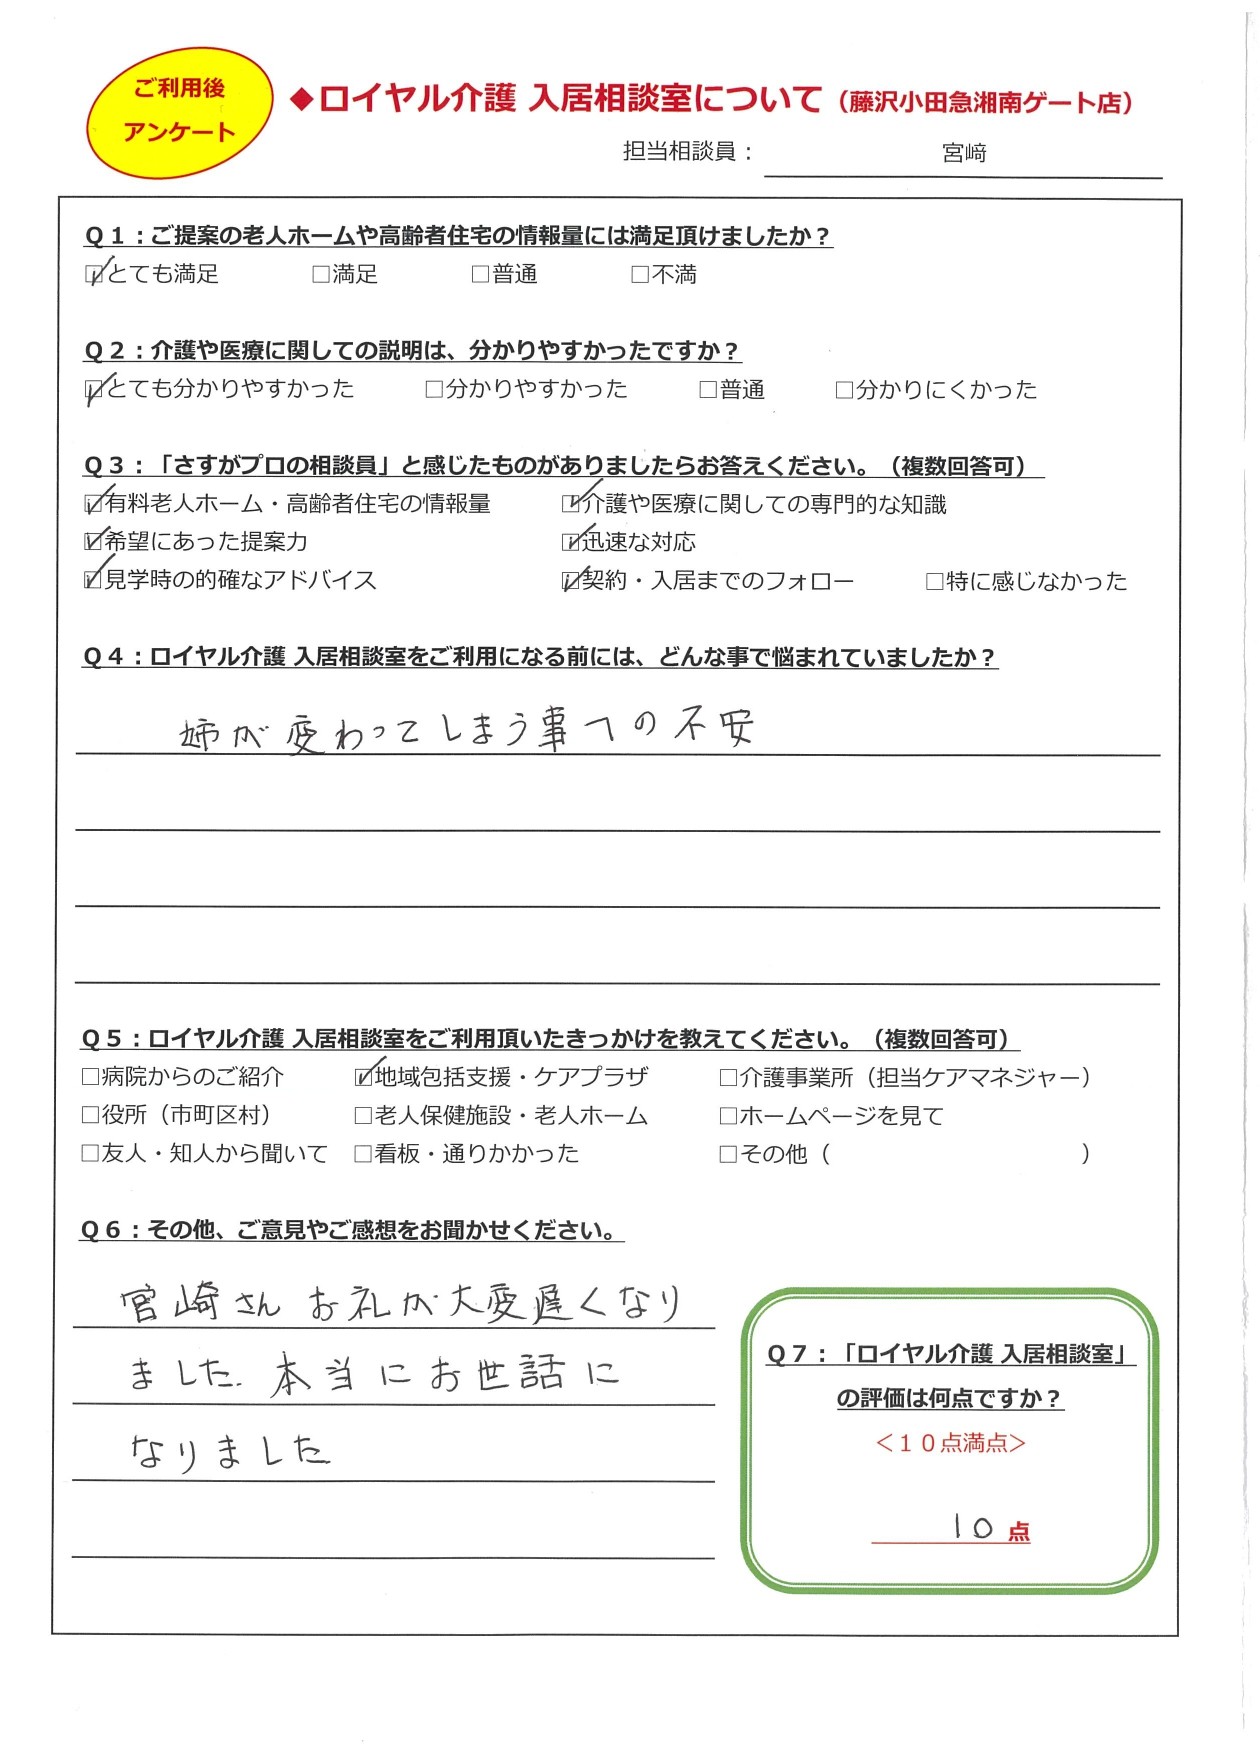 ご利用後
アンケート
◆ロイヤル介護 入居相談室について（藤沢小田急湘南ゲート店）
担当相談員： 宮﨑
Q1：ご提案の老人ホームや高齢者住宅の情報量には満足頂けましたか？
☑とても満足 □満足 □普通 □不満
Q2：介護や医療に関しての説明は、分かりやすかったですか？
☑とても分かりやすかった □分かりやすかった □普通 □分かりにくかった
Q3：「さすがプロの相談員」と感じたものがありましたらお答えください。（複数回答可）
☑有料老人ホーム・高齢者住宅の情報量 ☑介護や医療に関しての専門的な知識
☑希望にあった提案力 ☑迅速な対応
☑見学時の的確なアドバイス ☑契約・入居までのフォロー □特に感じなかった
Q4：ロイヤル介護 入居相談室をご利用になる前には、どんな事で悩まれていましたか？
姉が変わってしまう事への不安
Q5：ロイヤル介護 入居相談室をご利用頂いたきっかけを教えてください。（複数回答可）
□病院からのご紹介 ☑地域包括支援・ケアプラザ □介護事業所（担当ケアマネジャー）
□役所（市町区村） □老人保健施設・老人ホーム □ホームページを見て
□友人・知人から聞いて □看板・通りかかった □その他（ ）
Q6：その他、ご意見やご感想をお聞かせください。
宮崎さんお礼が大変遅くなり
ました.本当にお世話に
なりました
Q7：「ロイヤル介護 入居相談室」
の評価は何点ですか？
＜10点満点＞
10点